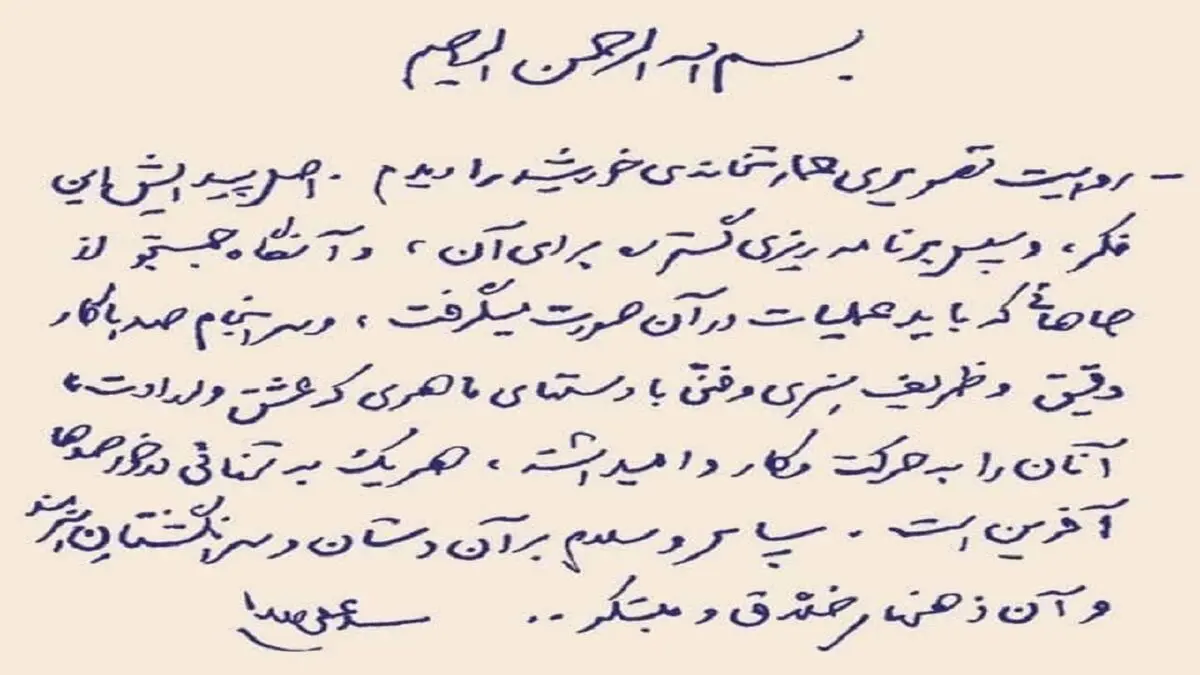 بسم الله الرحمن الرحیم
- روایت تصویری نگارخانه‌ی خورشید را دیدم . اصل پیدایش این
فکر، و سپس برنامه ریزی گسترده برای آن ، و آنگاه جستجو از
جاهائی که باید عملیات در آن صورت میگرفت ، و سرانجام صدها کار
دقیق و ظریف هنری و فنّی با دستهای ماهری که عشق و ارادت ،
آنان را به حرکت و کار وامیداشته ، هر یک به تنهائی در خور صدها
آفرین است . سپاس و سلام بر آن دستان و سرانگشتان هنرمند
و آن ذهنهای خلّاق و مبتکر ..